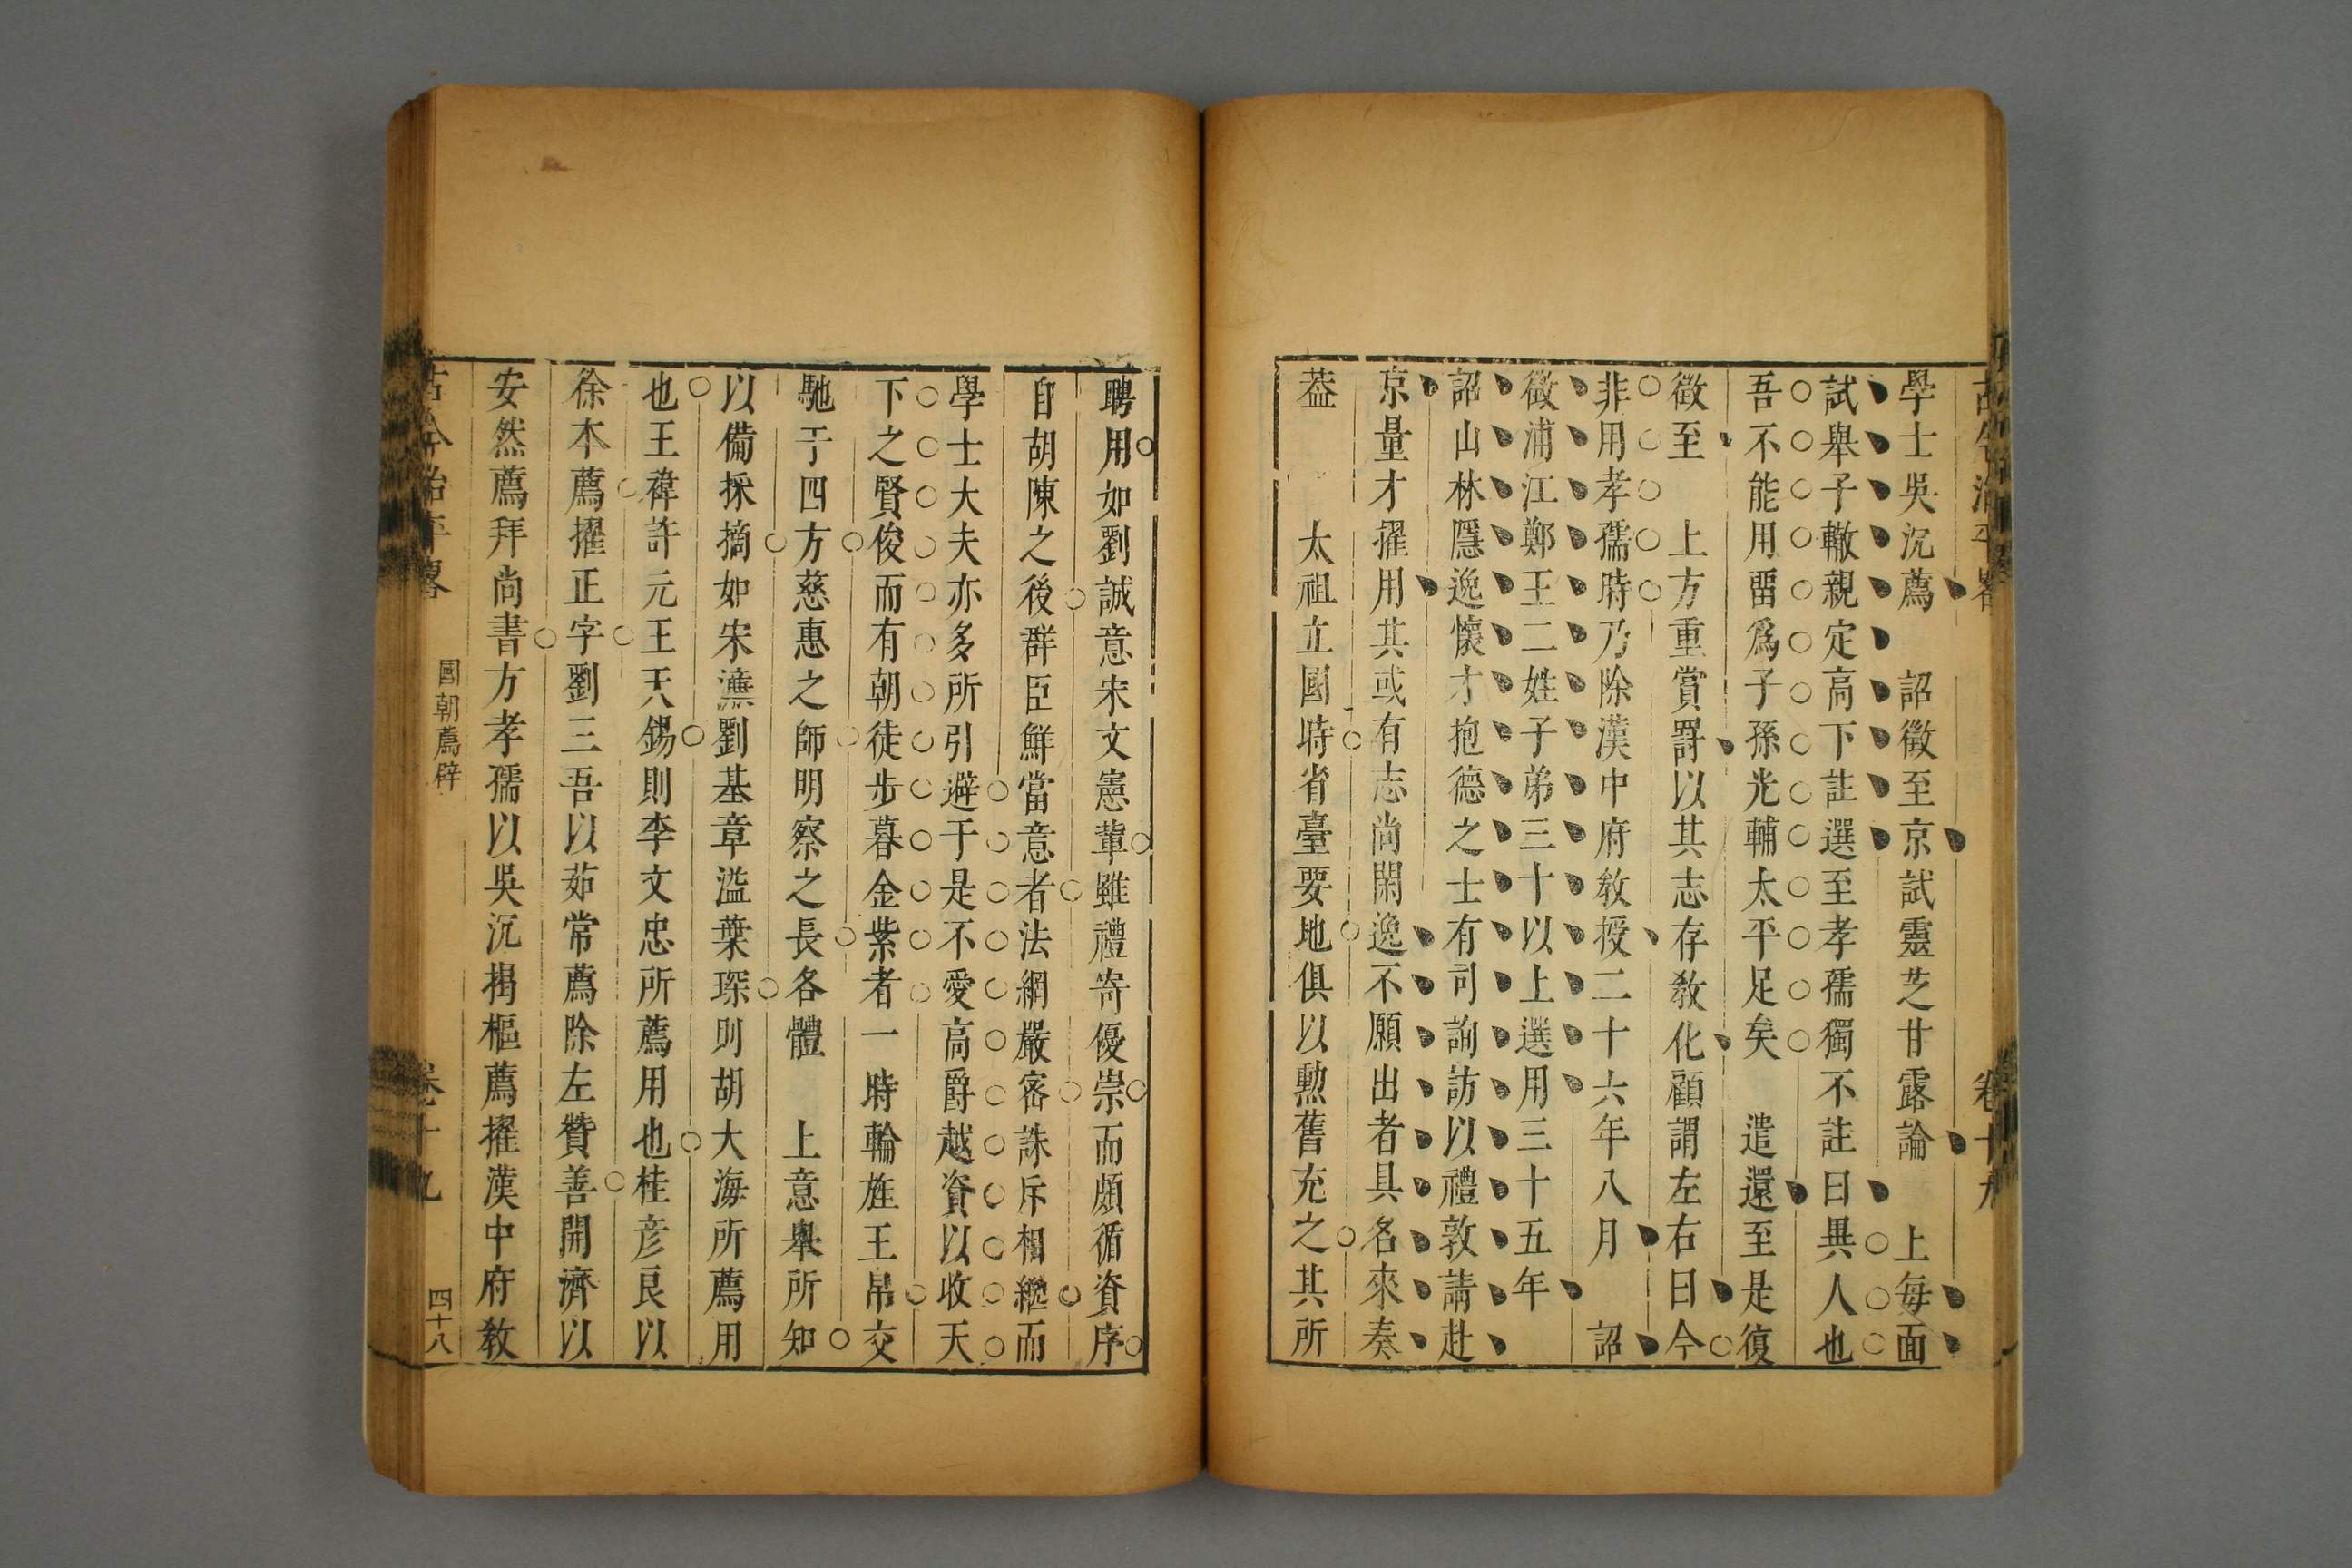 古今治平畧 卷十九
學士吳沉薦 詔徵至京試靈芝甘露論 上每面
試舉子輙親定高下註選至孝孺獨不註曰異人也
吾不能用畱爲子孫光輔太平足矣 遣還至是復
徵至 上方重賞罸以其志存敎化顧謂左右曰今
非用孝孺時乃除漢中府敎授二十六年八月 詔
徵浦江鄭王二姓子弟三十以上選用三十五年
詔山林隱逸懷才抱德之士有司詢訪以禮敦請赴
京量才擢用其或有志尚閑逸不願出者具名來奏
葢 太祖立國時省臺要地俱以勲舊充之其所
聘用如劉誠意宋文憲軰雖禮寄優崇而頗循資序
自胡陳之後群臣鮮當意者法網嚴宻誅斥相繼而
學士大夫亦多所引避于是不愛高爵越資以收天
下之賢俊而有朝徒步暮金紫者一時輪旌王帛交
馳于四方慈惠之師明察之長各體 上意舉所知
以備採摘如宋濂劉基章溢葉琛則胡大海所薦用
也王褘許元王天錫則李文忠所薦用也桂彦良以
徐本薦擢正字劉三吾以茹常薦除左贊善開濟以
安然薦拜尚書方孝孺以吳沉揭樞薦擢漢中府教
古今治平畧 國朝薦辟 卷十九 四十八